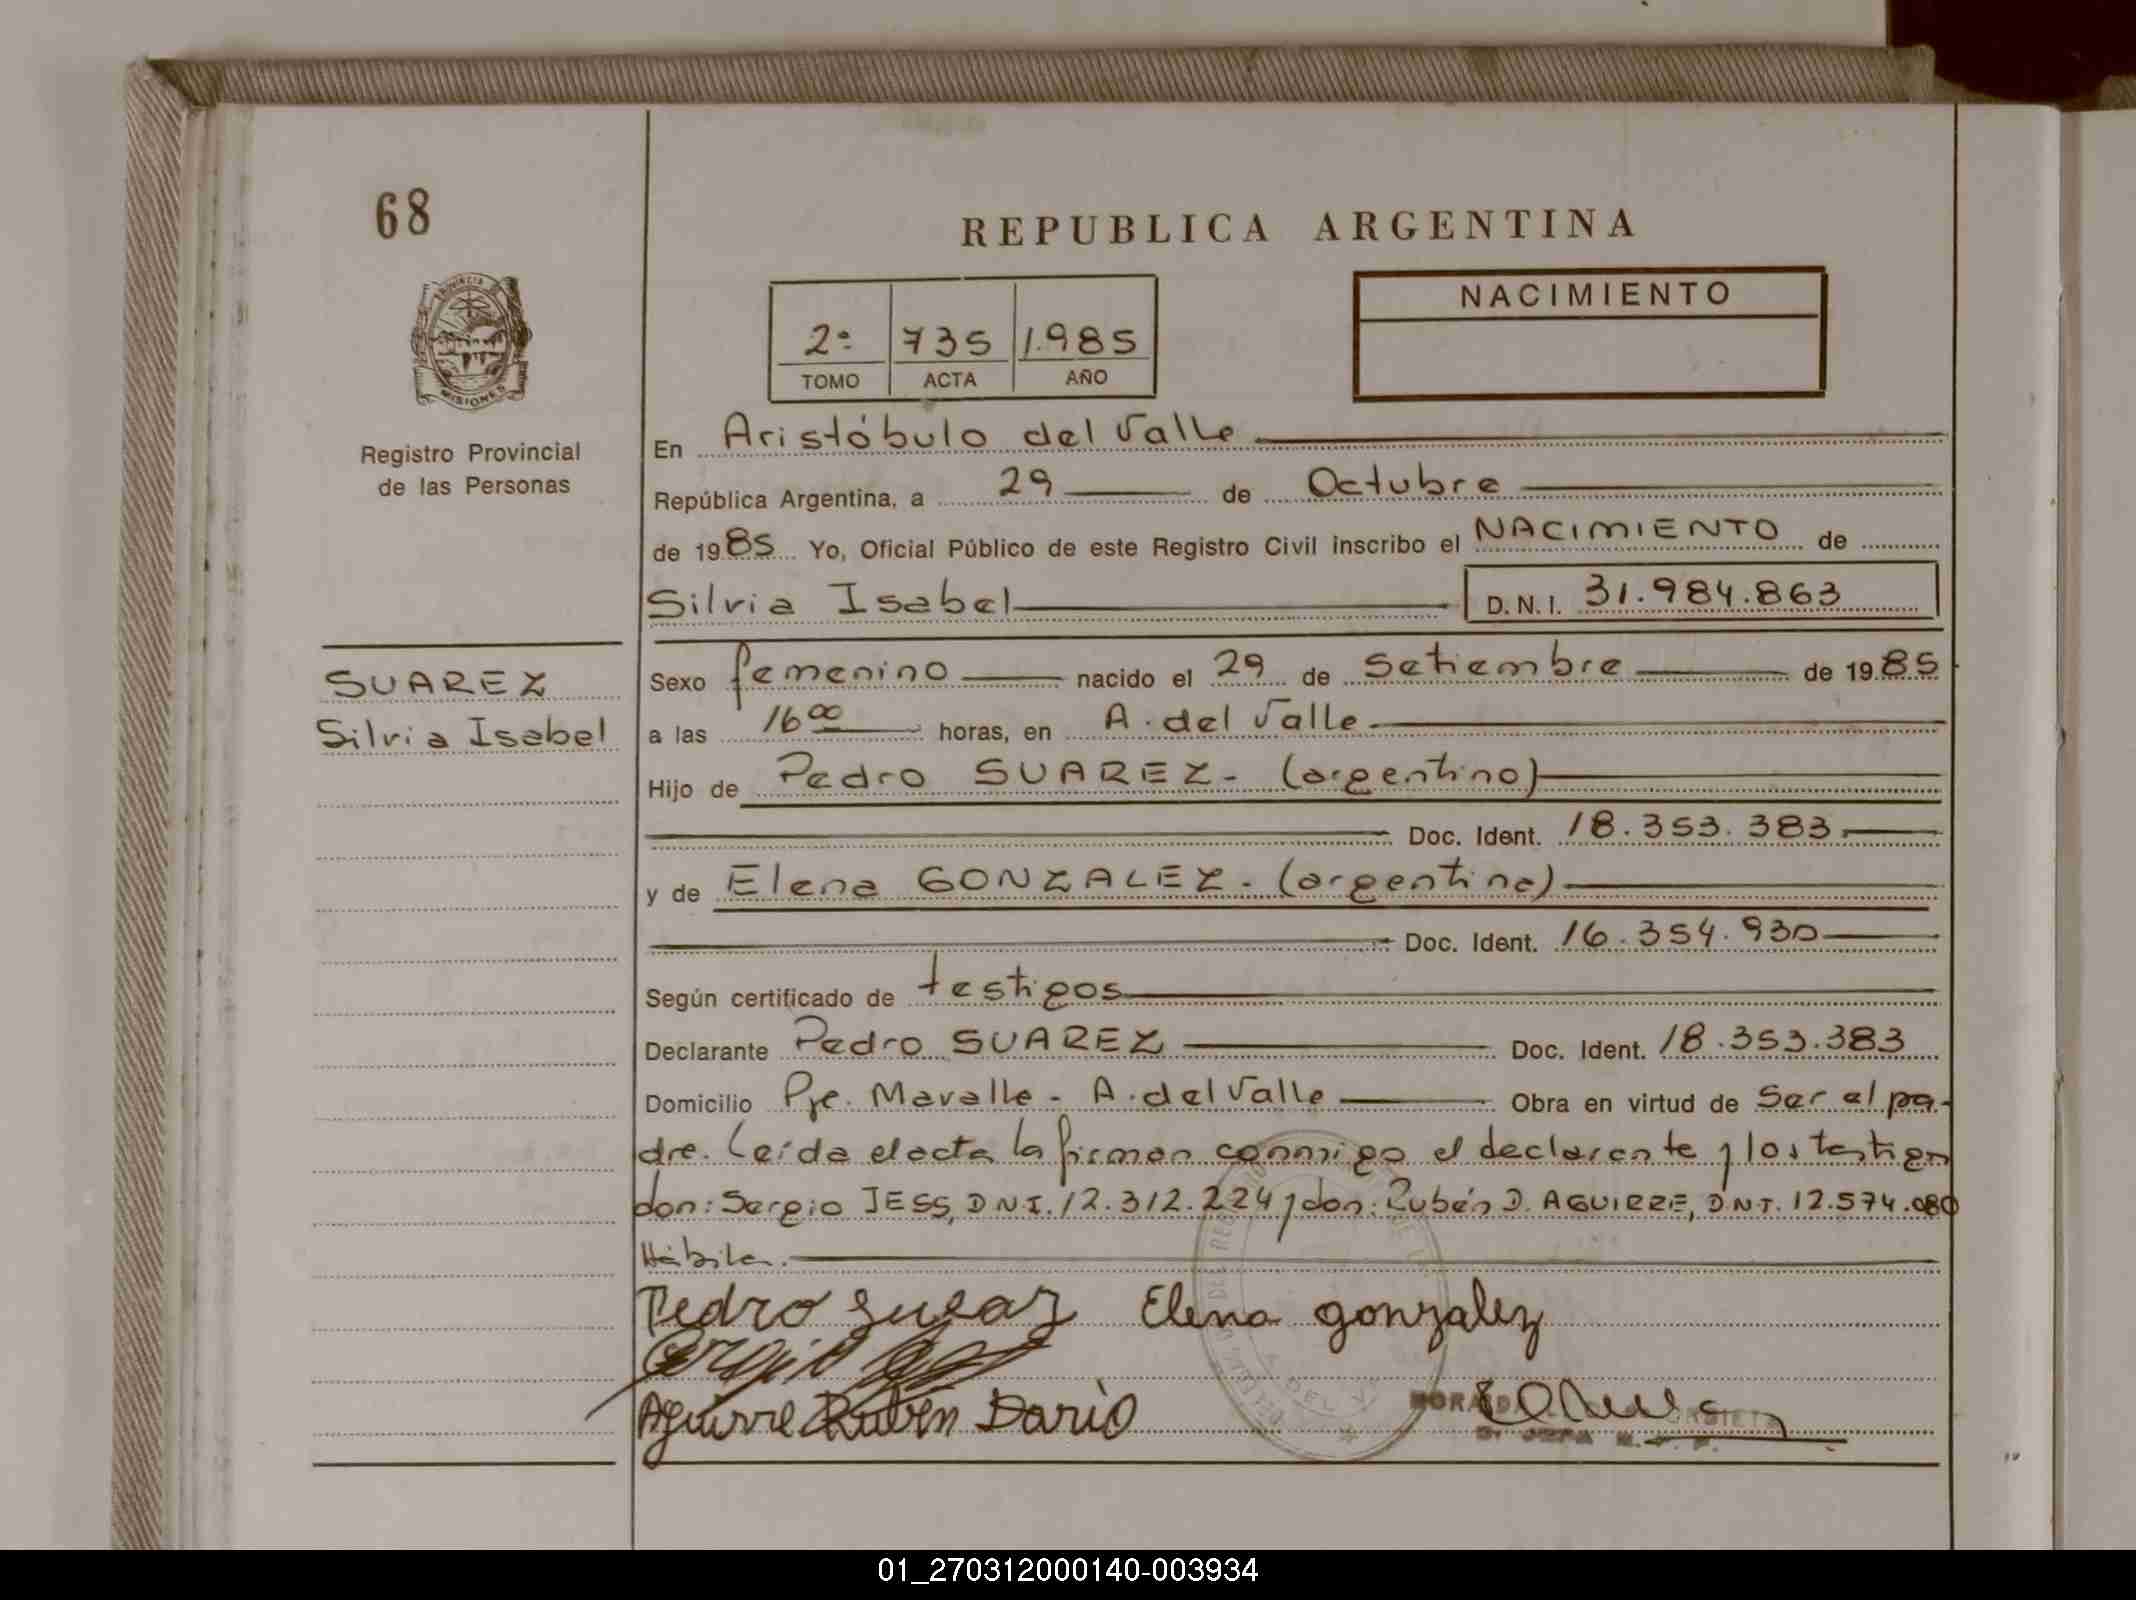 68
REPUBLICA ARGENTINA
NACIMIENTO
2º 735 1.985
TOMO ACTA AÑO
PROVINCIA
MISIONES
Registro Provincial
de las Personas
En Aristóbulo del Valle
República Argentina, a 29 de Octubre
de 1985 Yo, Oficial Público de este Registro Civil inscribo el NACIMIENTO de
Silvia Isabel D.N.I. 31.984.863
SUAREZ
Silvia Isabel
Sexo femenino nacido el 29 de Setiembre de 1985
a las 16 00 horas, en A. del Valle
Hijo de Pedro SUAREZ - (argentino)
Doc. Ident. 18.353.383
y de Elena GONZALEZ - (argentina)
Doc. Ident. 16.354.930
Según certificado de testigos
Declarante Pedro SUAREZ Doc. Ident. 18.353.383
Domicilio Pje. Mavalle - A. del Valle Obra en virtud de Ser el pa-
dre. Leída el acta la firman conmigo el declarante y los testigos
don: Sergio JESS, D.N.I. 12.312.224 y don: Rubén D. AGUIRRE, D.N.I. 12.574.080
Hábiles.
Pedro Sueaz Elena gonzalez
Aguirre Rubén Darío
01_270312000140-003934